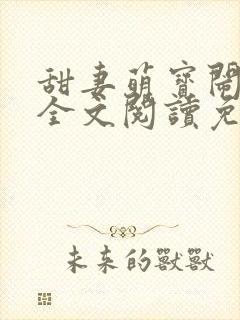 甜妻萌寶鬧
全文閱讀免
未來的獸獸